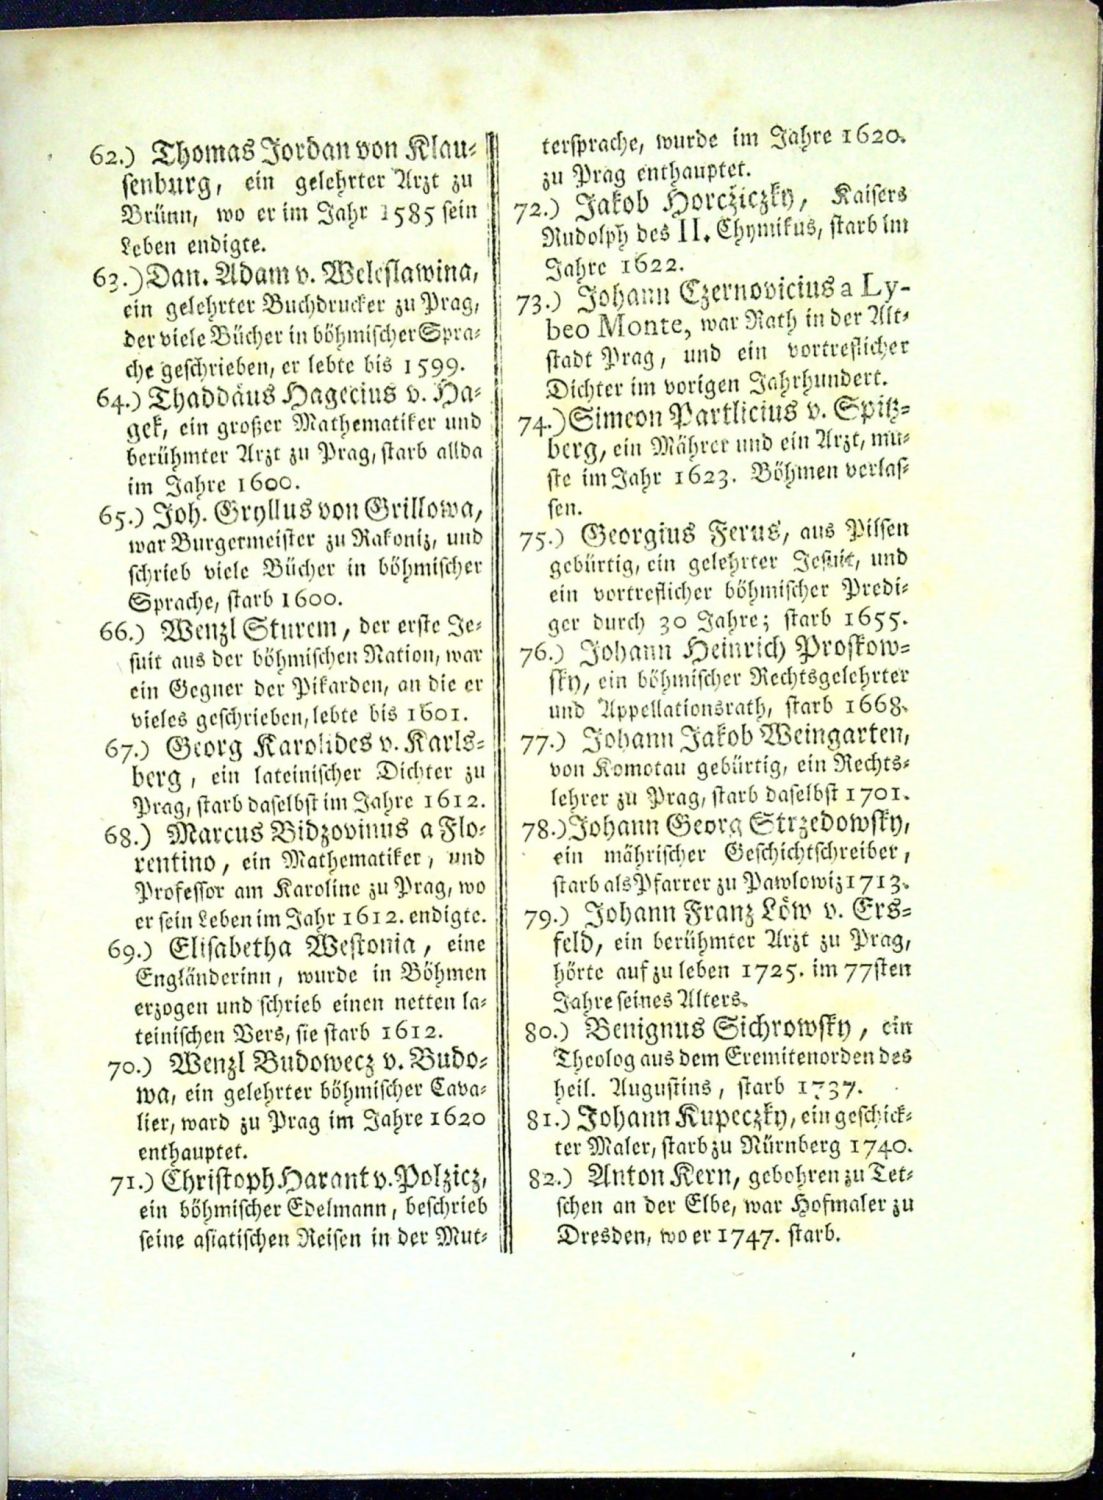 62.) Thomas Jordan von Klau-
senburg, ein gelehrter Arzt zu
Brünn, wo er im Jahr 1585 sein
Leben endigte.
63.) Dan. Adam v. Weleslawina,
ein gelehrter Buchdrucker zu Prag,
der viele Bücher in böhmischer Spra-
che geschrieben, er lebte bis 1599.
64.) Thaddäus Hagecius v. Ha-
gek, ein großer Mathematiker und
berühmter Arzt zu Prag, starb allda
im Jahre 1600.
65.) Joh. Gryllus von Grillowa,
war Burgermeister zu Rakoniz, und
schrieb viele Bücher in böhmischer
Sprache, starb 1600.
66.) Wenzl Sturem, der erste Je-
suit aus der böhmischen Nation, war
ein Gegner der Pikarden, an die er
vieles geschrieben, lebte bis 1601.
67.) Georg Karolides v. Karls-
berg, ein lateinischer Dichter zu
Prag, starb daselbst im Jahre 1612.
68.) Marcus Bidzovinus a Flo-
rentino, ein Mathematiker, und
Professor am Karoline zu Prag, wo
er sein Leben im Jahr 1612. endigte.
69.) Elisabetha Westonia, eine
Engländerinn, wurde in Böhmen
erzogen und schrieb einen netten la-
teinischen Vers, sie starb 1612.
70.) Wenzl Budowecz v. Budo-
wa, ein gelehrter böhmischer Cava-
lier, ward zu Prag im Jahre 1620
enthauptet.
71.) Christoph Harant v. Polzicz,
ein böhmischer Edelmann, beschrieb
seine asiatischen Reisen in der Mut-
tersprache, wurde im Jahre 1620.
zu Prag enthauptet.
72.) Jakob Horcžiczky, Kaisers
Rudolph des II. Chymikus, starb im
Jahre 1622.
73.) Johann Czernovicius a Ly-
beo Monte, war Rath in der Alt-
stadt Prag, und ein vortreflicher
Dichter im vorigen Jahrhundert.
74.) Simeon Partlicius v. Spitz-
berg, ein Mährer und ein Arzt, mu-
ste im Jahr 1623. Böhmen verlas-
sen.
75.) Georgius Ferus, aus Pilsen
gebürtig, ein gelehrter Jesuit, und
ein vortreflicher böhmischer Predi-
ger durch 30 Jahre; starb 1655.
76.) Johann Heinrich Proskow-
sky, ein böhmischer Rechtsgelehrter
und Appellationsrath, starb 1668.
77.) Johann Jakob Weingarten,
von Komotau gebürtig, ein Rechts-
lehrer zu Prag, starb daselbst 1701.
78.) Johann Georg Strzedowsky,
ein mährischer Geschichtschreiber,
starb als Pfarrer zu Pawlowiz 1713.
79.) Johann Franz Löw v. Ers-
feld, ein berühmter Arzt zu Prag,
hörte auf zu leben 1725. im 77sten
Jahre seines Alters.
80.) Benignus Sichrowsky, ein
Theolog aus dem Eremitenorden des
heil. Augustins, starb 1737.
81.) Johann Kupeczky, ein geschick-
ter Maler, starb zu Nürnberg 1740.
82.) Anton Kern, gebohren zu Tet-
schen an der Elbe, war Hofmaler zu
Dresden, wo er 1747. starb.